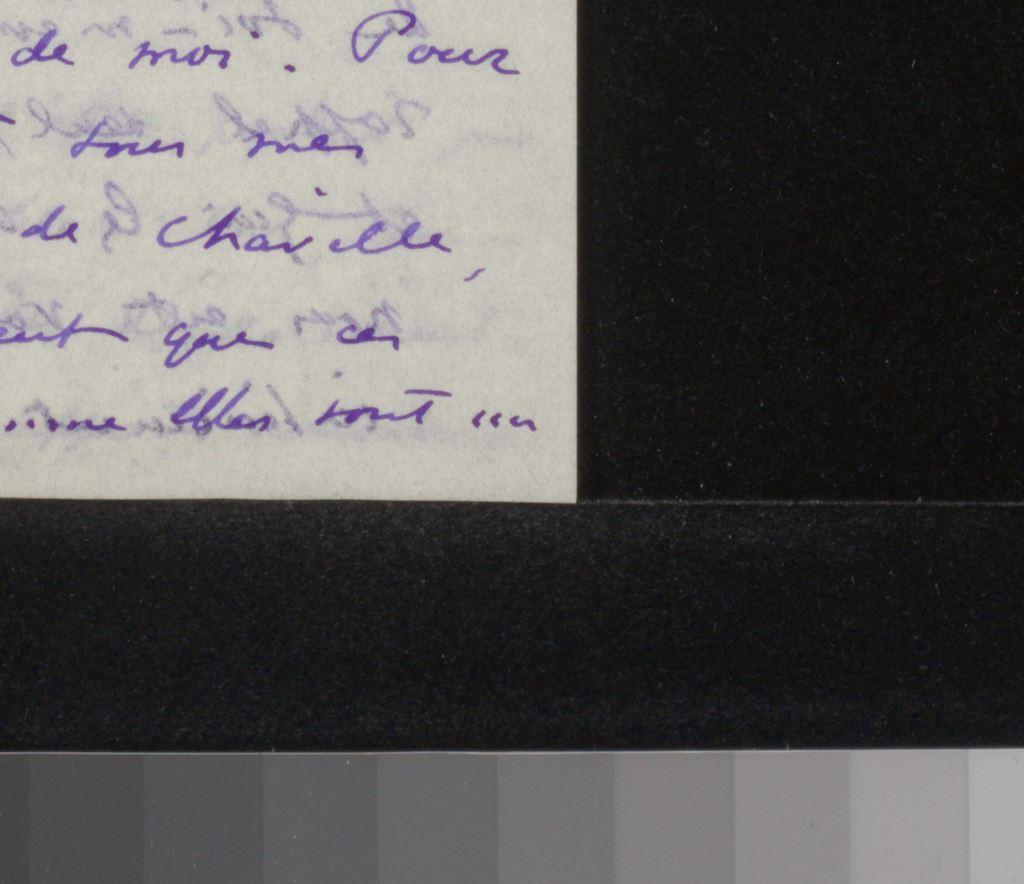 de moi. Pour
tous mes
de Chaville,
que ces
elles sont un